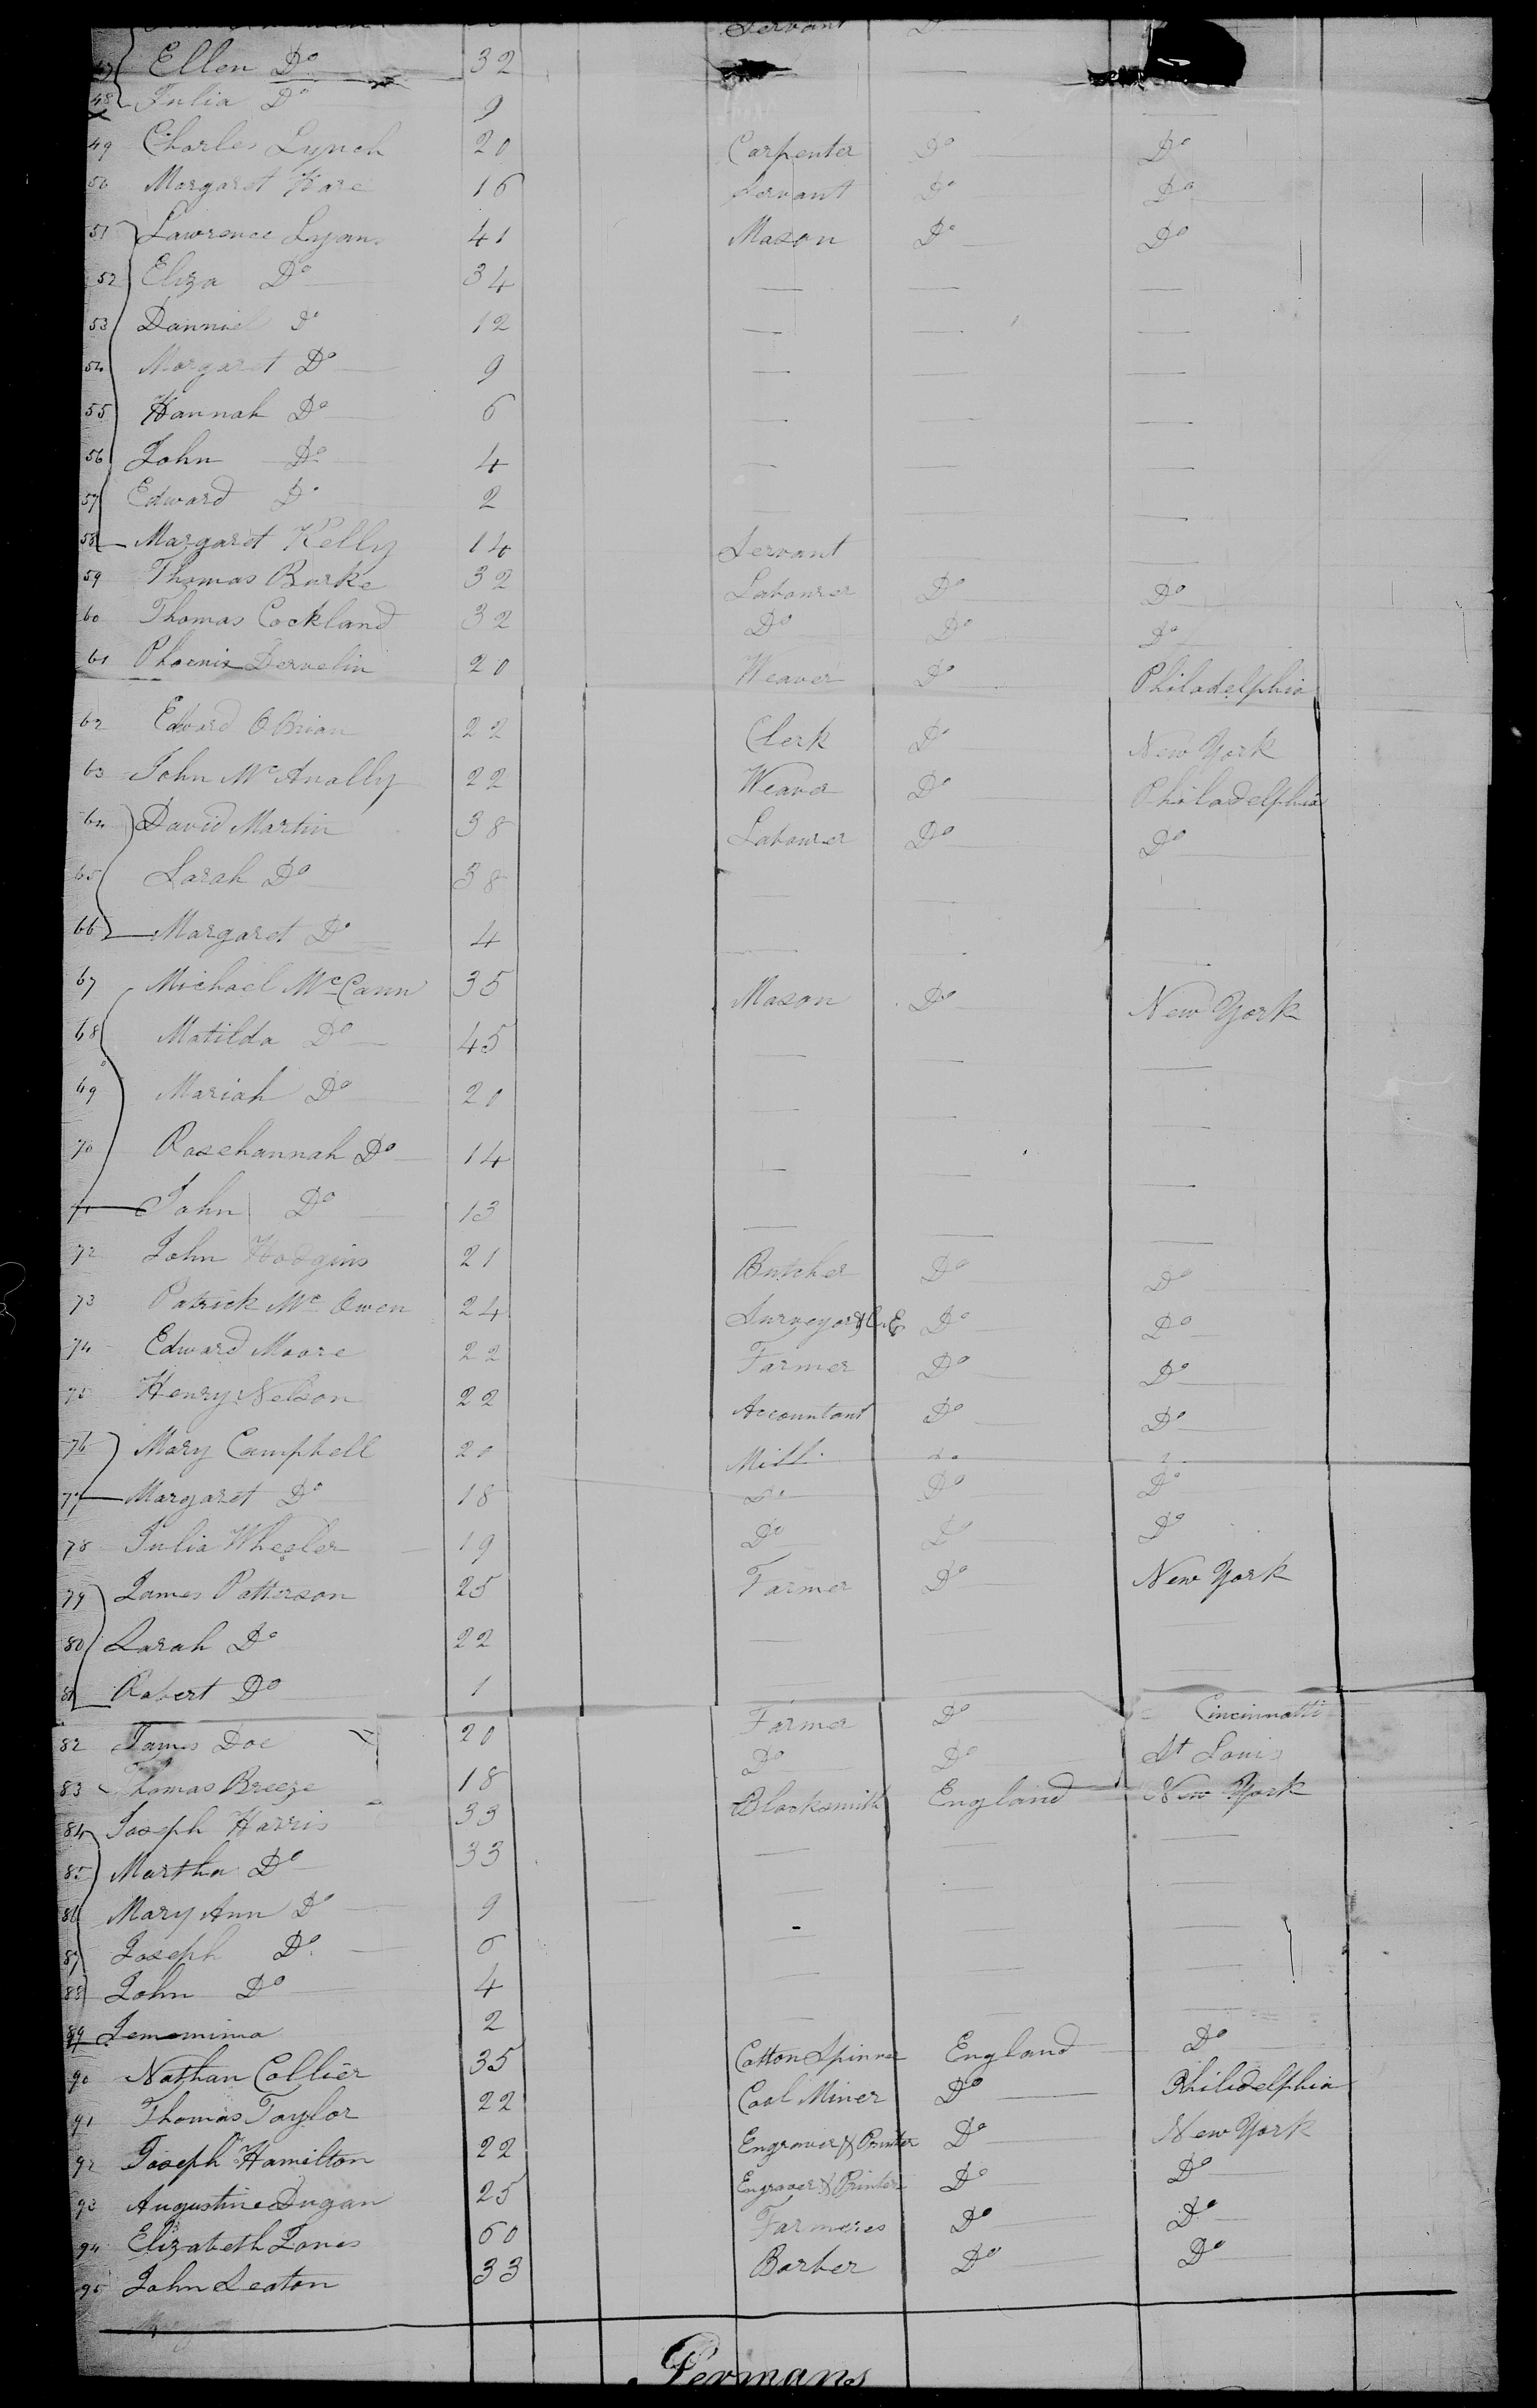 Servant D
Ellen Do 32
48 Julia Do 9
49 Charles Lynch 20 Carpenter Do Do
50 Margaret 16 Servant Do Do
51 Lawrence Lyans 41 Mason Do Do
52 Eliza Do 34
53 Danniel Do 12
54 Margaret Do 9
55 Hannah Do 6
56 John Do 4
57 Edward Do 2
58 Margaret Kelly 14 Servant
59 Thomas Burke 32 Labourer Do Do
60 Thomas Cockland 32 Do Do Do
61 Phoenix Dervelin 20 Weaver Do Philadelphia
62 Edward O Brian 22 Clerk Do New York
63 John Mc Anally 22 Weaver Do Philadelphia
64 David Martin 38 Labourer Do Do
65 Sarah Do 38
66 Margaret Do 4
67 Michael McCann 35 Mason Do New York
68 Matilda Do 45
69 Mariah Do 20
70 Rosehannah Do 14
71 John Do 13
72 John Hodgins 21 Butcher Do Do
73 Patrick Mc Owen 24 Surveyor & C.E Do Do
74 Edward Moore 22 Farmer Do Do
75 Henry Nelson 22 Accountant Do Do
76 Mary Campbell 20 Mill. do
77 Margaret Do 18 Do Do Do
78 Julia Wheeler 19 Do Do Do
79 James Patterson 25 Farmer Do New York
80 Sarah Do 22
81 Robert Do 1
82 James Doe 20 Farmer Do Cincinnatti
83 Thomas Breeze 18 Do Do St Louis
84 Joseph Harris 33 Blacksmith England New York
85 Martha Do 33
86 Mary Ann Do 9
87 Joseph Do 6
88 John Do 4
89 Jemomima 2
90 Nathan Collier 35 Cotton Spinner England Do
91 Thomas Taylor 22 Coal Miner Do Philidelphia
92 Joseph Hamilton 22 Engraver & Printer Do New York
93 Augustine Dugan 25 Engraver & Printer Do Do
94 Elizabeth Jones 60 Farmeres Do Do
95 John Seaton 33 Barber Do Do
Germans